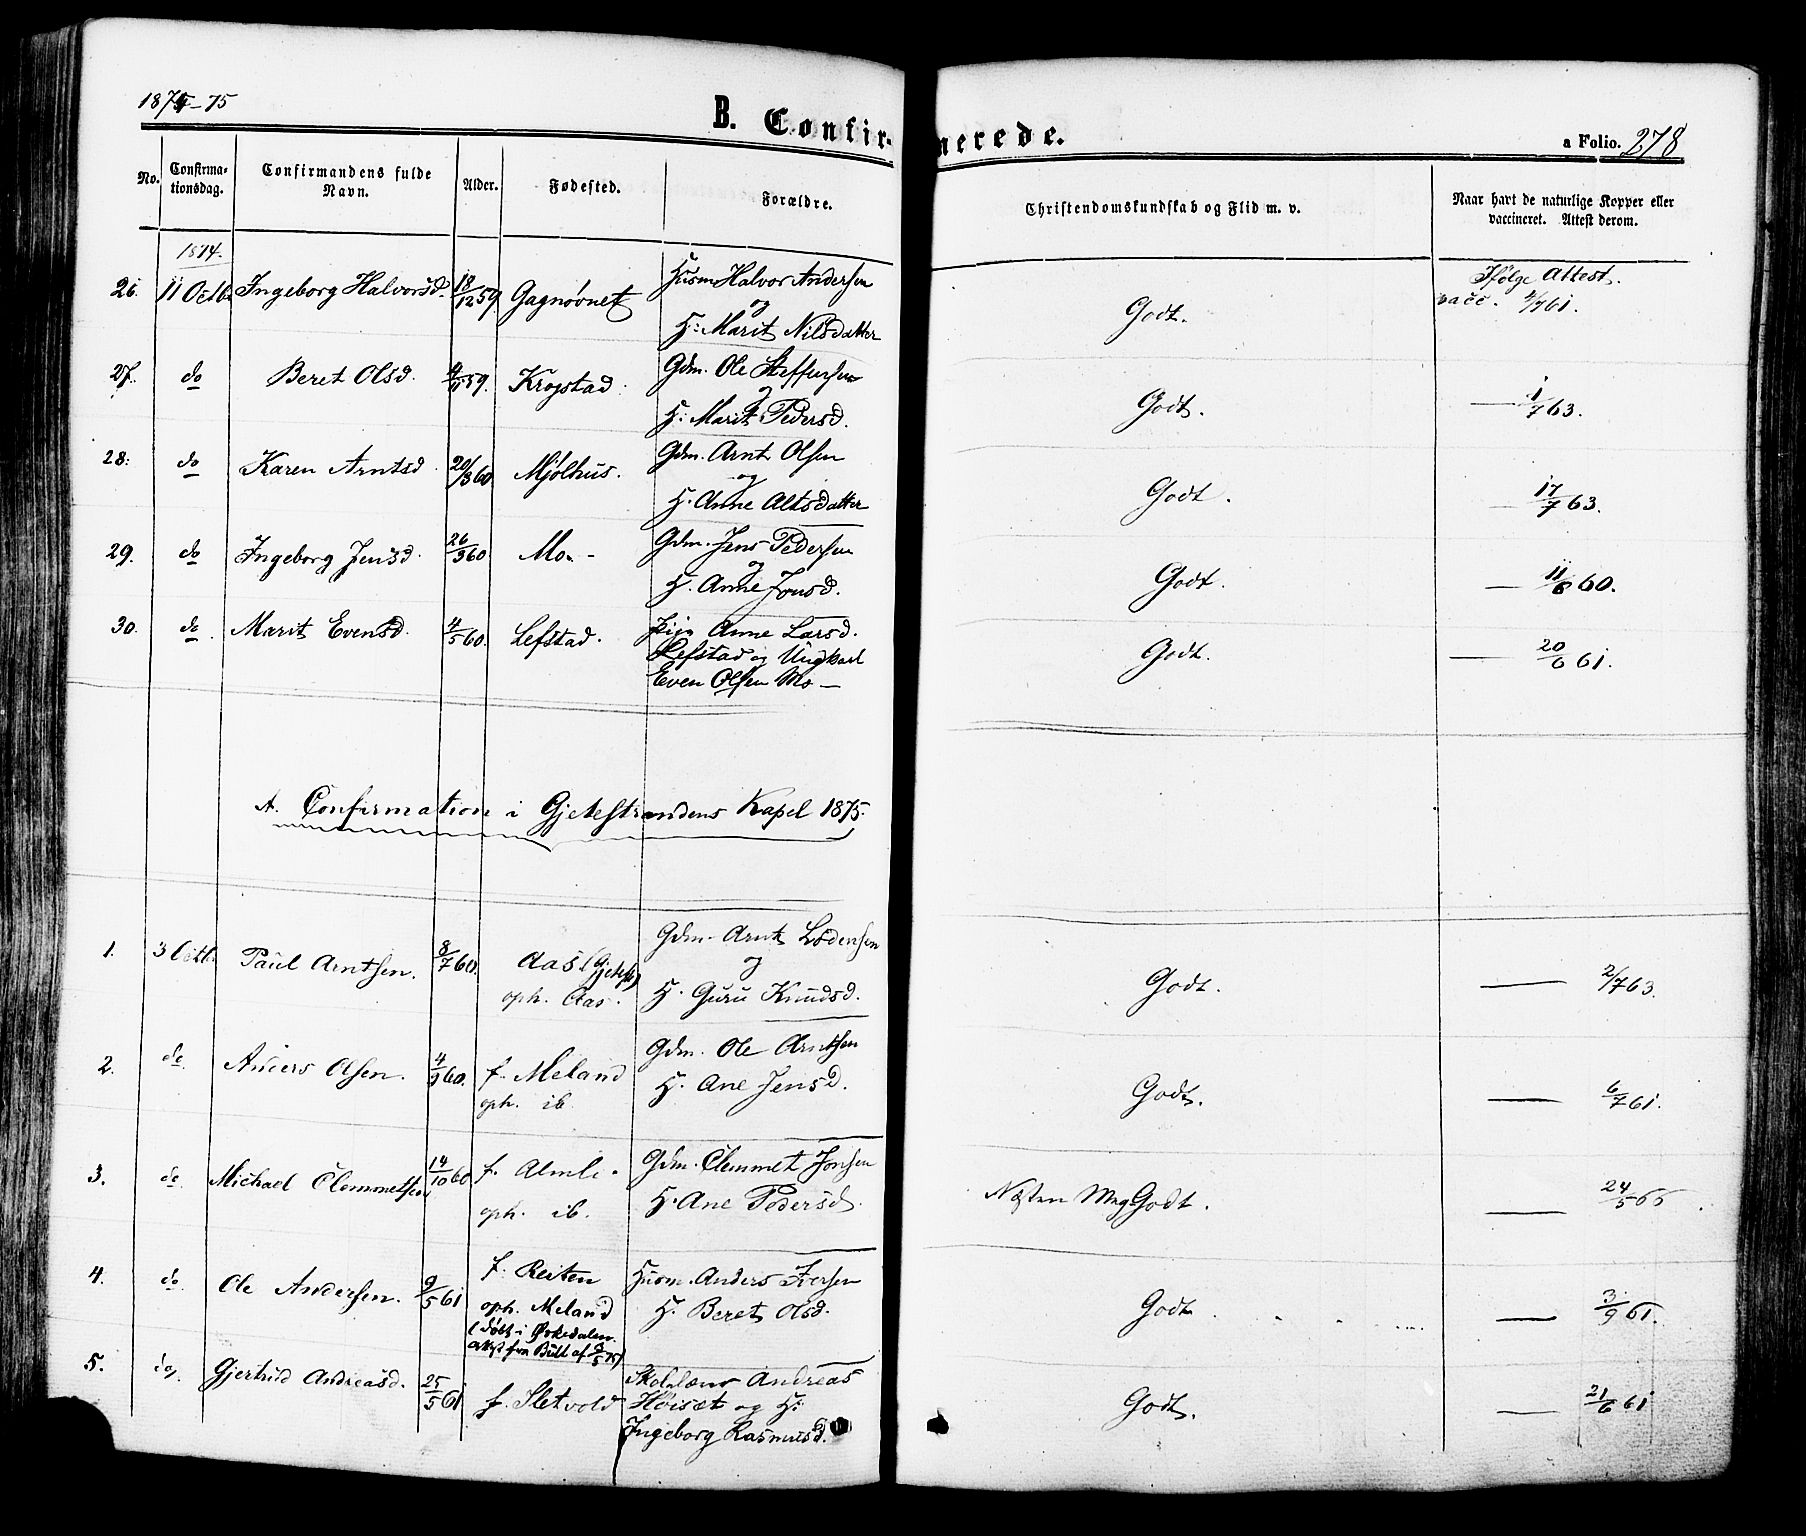 1874-75
B. Confirmerede.
a Folio. 278
No. Confirmationsdag. Confirmandens fulde Navn. Alder. Fødested. Forældre. Christendomskundskab og Flid m. v. Naar havt de naturlige Kopper eller vaccineret. Attest derom.
1874.
26. 11 Octb. Ingeborg Halvorsd. 18/12 59. Gagnøvnet Husm Halvor Andersen og H: Marit Nilsdatter Godt. Ifølge Attest. vacc. 4/7 61.
27. do Beret Olsd. 59. Krogstad. Gdm. Ole Steffensen og H: Marit Pedersd. Godt. — 1/7 63.
28. do Karen Arntsd. 20/3 60 Mjølhus. Gdm. Arnt Olsen og H. Anne Altsdatter Godt. — 17/7 63.
29. do Ingeborg Jensd. 26/3 60 Mo - Gdm. Jens Pedersen og H. Anne Jonsd. Godt. — 11/8 60.
30. do Marit Evensd. 4/5 60. Lefstad. Pige Anne Larsd. Lefstad og Ungkarl Even Olsen Mo — Godt. — 20/6 61.
A. Confirmation i Gjetestrandens Kapel 1875.
1. 3 Octb. Paul Arntsen. 8/7 60. Aas (Gjetest) oph. Aas. Gdm. Arnt Lodensen og H. Guru Knudsd. Godt. — 2/7 63.
2. do Anders Olsen. 4/9 60. f. Meland oph. ib. Gdm. Ole Arntsen H. Ane Jensd. Godt. — 6/7 61.
3. do Michael Clemmetsen 14/10 60 f. Almli. oph. ib. Gdm. Clemmet Jonsen H. Ane Pedersd. Næsten MegGodt. — 24/5 66
4. do Ole Andersen. 9/5 61 f. Reiten oph. Meland (døbt i Ørkedalen. Attest fra Bull af 9/5 75) Husm. Anders Iversen H. Beret Olsd. Godt. — 3/9 61.
5. do, Gjertrud Andreasd. 25/5 61 f. Sletvold Skolelærer Andreas Høisæt og H: Ingeborg Rasmusd. Godt. — 21/6 61